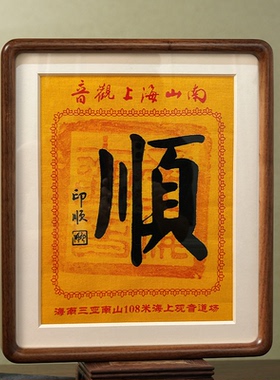 南山海上觀音
順
印順
海南三亚南山108米海上观音道场